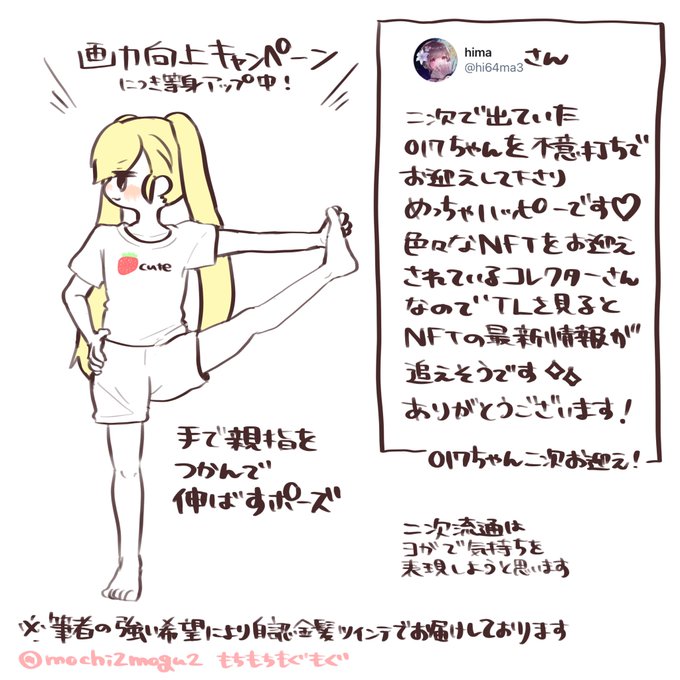 画力向上キャンペーン
につき等身アップ中！
cute
手で親指を
つかんで
伸ばすポーズ
hima
@hi64ma3
さん
二次で出ていた
017ちゃんを不意打ちで
お迎えして下さり
めっちゃハッピーです♡
色々なNFTをお迎え
されているコレクターさん
なのでTLを見ると
NFTの最新情報が
追えそうです
ありがとうございます！
017ちゃん二次お迎え！
二次流通は
ヨガで気持ちを
表現しようと思います
※筆者の強い希望により自認金髪ツインテでお届けしております
@mochi2mogu2 もちもちもぐもぐ